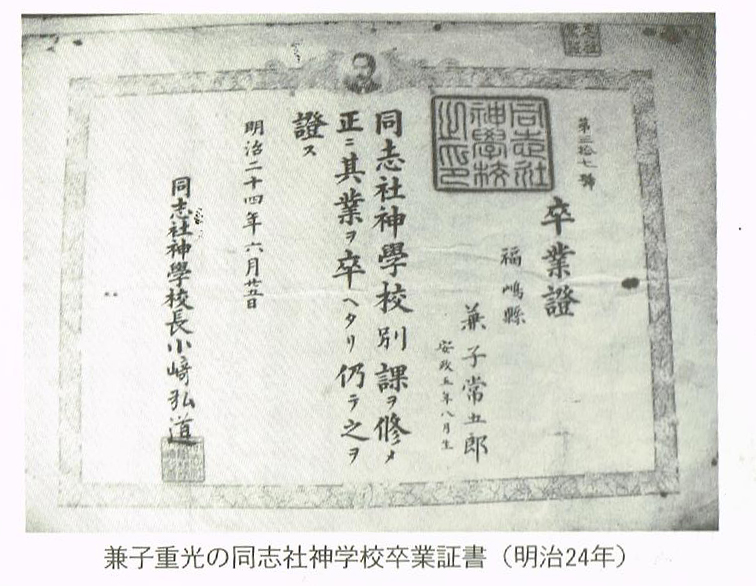 第三拾七號
卒業證
福嶋縣
兼子常五郎
安政五年八月生
同志社神學校之印
同志社神學校別課ヲ修メ
正ニ其業ヲ卒ヘタリ仍テ之ヲ
證ス
明治二十四年六月廿五日
同志社神學校長小﨑弘道
兼子重光の同志社神学校卒業証書（明治24年）